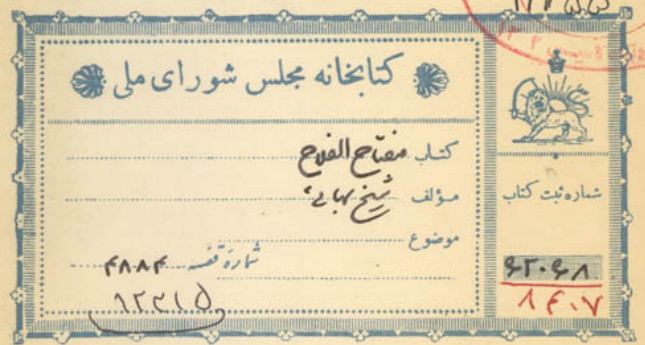 کتابخانه مجلس شورای ملی
کتاب مفتاح الفلاح
مؤلف شیخ بهائی
موضوع
شماره قفسه ۴۸۸۴
۱۲۳۱۵
شماره ثبت کتاب
۶۲۰۶۸
۸۴۰۷